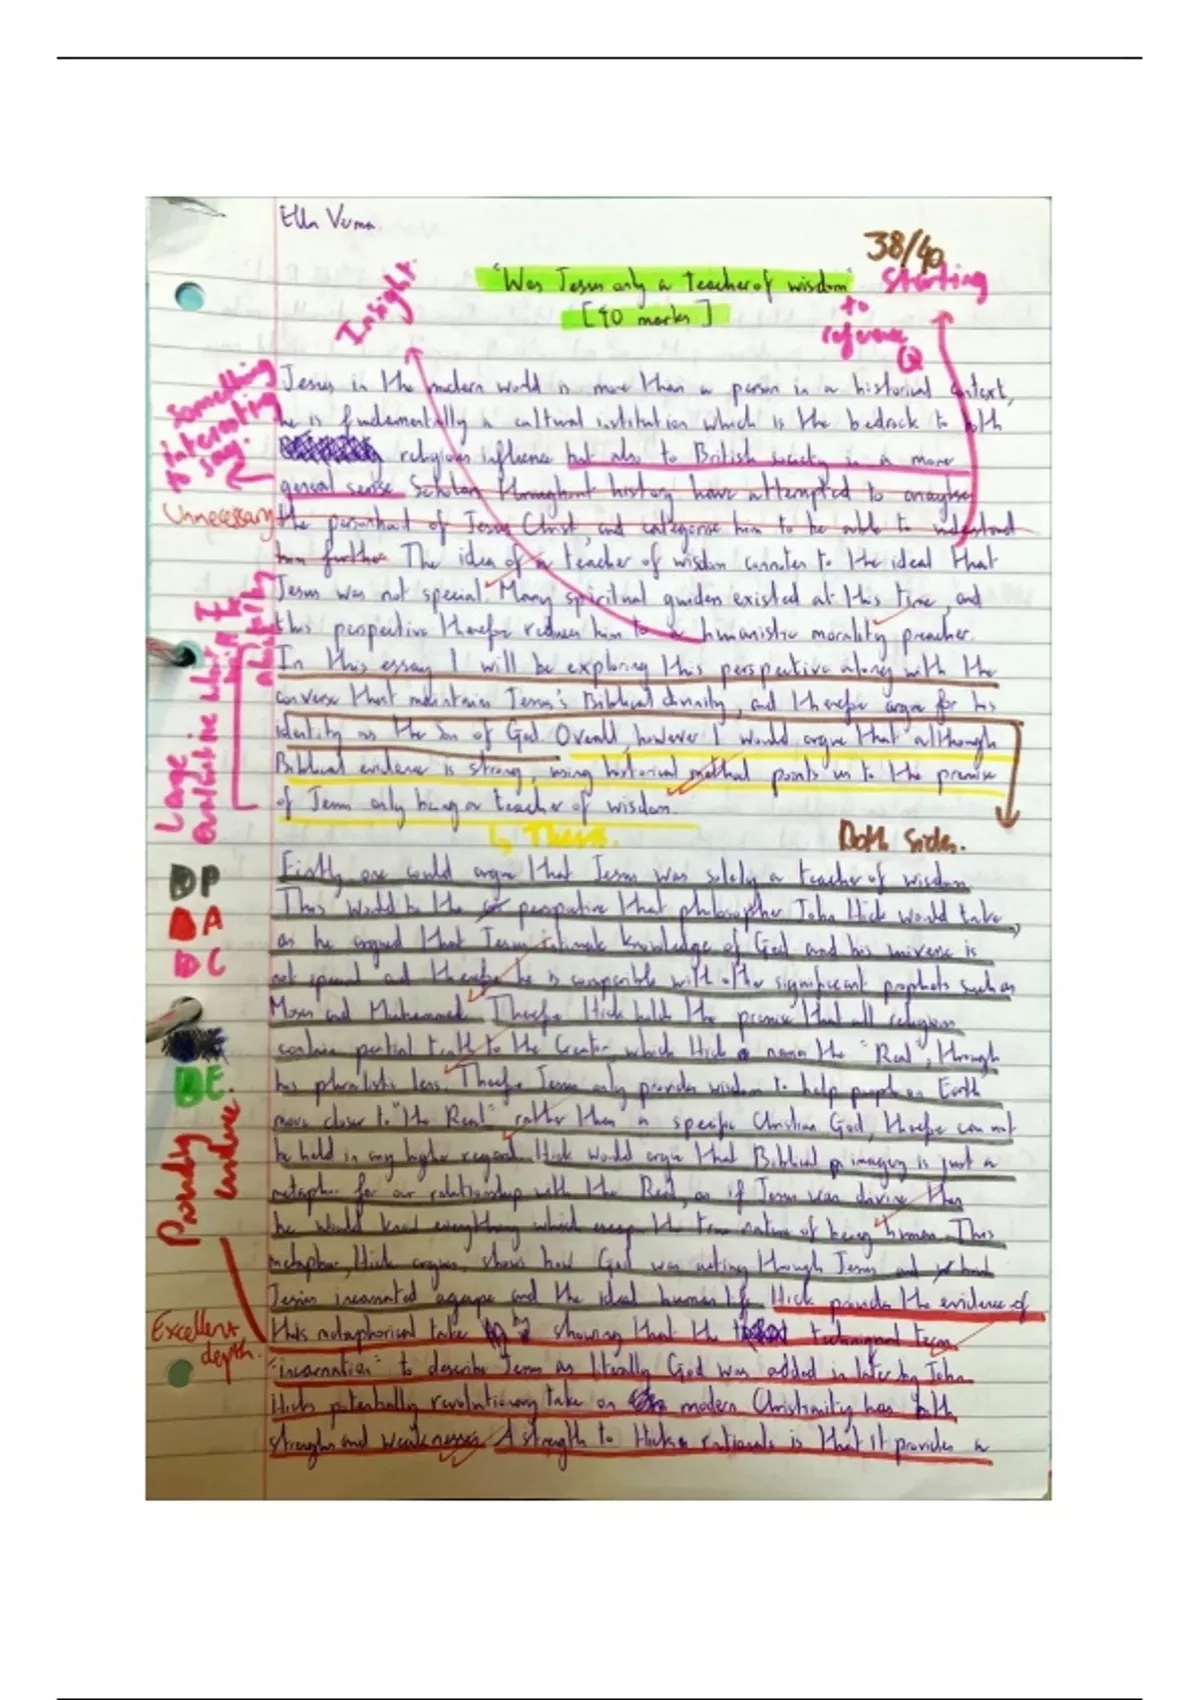 Ella Verma.
38/40
"Was Jesus only a teacher of wisdom"
[40 marks]
Insight.
Starting
to
reference
Q
something
interesting
to say.
Jesus in the modern world is more than a person in a historical context,
he is fundamentally a cultural institution which is the bedrock to both
religious influence but also to British society in a more
general sense. Scholars throughout history have attempted to analyse
Unnecessary
the personhood of Jesus Christ, and categorise him to be able to understand
him further. The idea of a teacher of wisdom connotes to the ideal that
Jesus was not special. Many spiritual guides existed at this time, and
this perspective therefore reduces him to a humanistic morality preacher.
In this essay I will be exploring this perspective along with the
converse that maintains Jesus's Biblical divinity, and therefore argue for his
identity as the Son of God. Overall, however I would argue that although
Biblical evidence is strong, using historical method points us to the premise
of Jesus only being a teacher of wisdom.
Large
evaluative
↳ Thesis.
Both sides.
DP
DA
DC
DE.
Firstly one could argue that Jesus was solely a teacher of wisdom.
This would be the perspective that philosopher John Hick would take,
as he argued that Jesus intimate knowledge of God and his universe is
not special and therefore he is comparible with other significant prophets such as
Moses and Muhammed. Therefore Hick holds the premise that all religions
contain partial truth to the Creator, which Hick names the "Real", through
his pluralistic lens. Therefore Jesus only provides wisdom to help people on Earth
move closer to "the Real" rather than a specific Christian God, therefore can not
be held in any higher regard. Hick would argue that Biblical imagery is just a
metaphor for our relationship with the Real, as if Jesus was divine then
he would know everything which escapes the true nature of being human. This
metaphor, Hick argues, shows how God was acting through Jesus and how
Jesus incarnated agape and the ideal human life. Hick provides the evidence of
this metaphorical take by showing that the technical term
"incarnation" to describe Jesus as literally God was added in later by John.
Hicks potentially revolutionary take on modern Christianity has both
strengths and weaknesses. A strength to Hicks rationale is that it provides a
Excellent
depth.